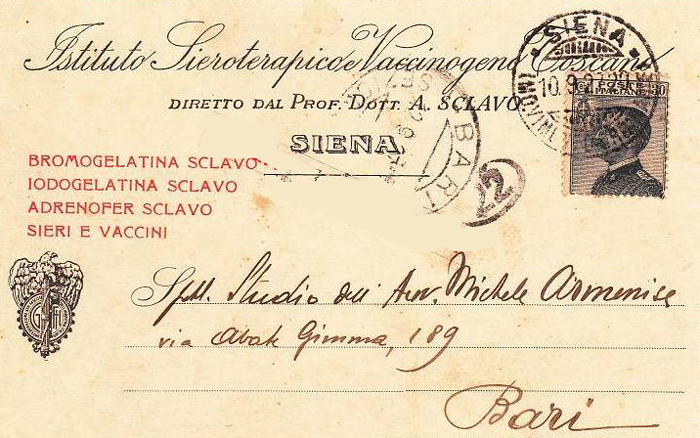 Istituto Sieroterapico e Vaccinogeno Toscano
DIRETTO DAL PROF. DOTT. A. SCLAVO
SIENA
BROMOGELATINA SCLAVO
IODOGELATINA SCLAVO
ADRENOFER SCLAVO
SIERI E VACCINI
SIENA
10.9.2
POSTE
ITALIANE
30
BARI
12
Spett. Studio dell'Avv. Michele Armenise
via Abate Gimma, 189
Bari